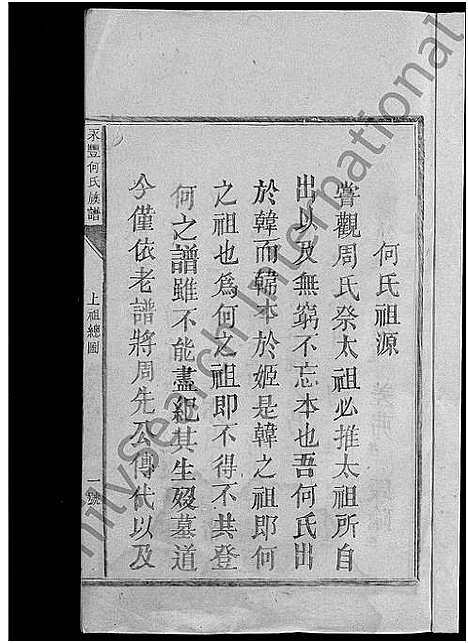 何氏祖源
嘗觀周氏祭太祖必推太祖所自
出以及無窮不忘本也吾何氏出
於韓而韓本於姬是韓之祖即何
之祖也爲何之祖即不得不共登
何之譜雖不能盡紀其生歿墓道
今僅依老譜將周先公傳代以及
永豐何氏族譜
上祖總圖
一號
FamilySearch International